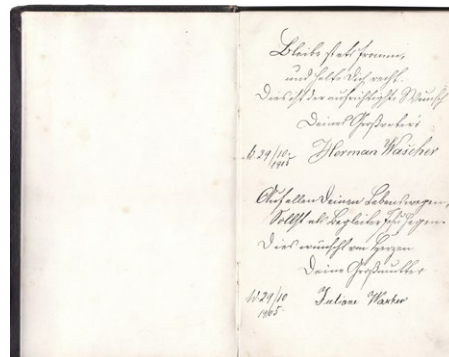 Bleibe stets fromm,
und halte Dich recht.
Dies ist der aufrichtigste Wunsch
Deines Großvaters
29/10 1905 Herman Wascher
Auf allen Deinen Lebenswegen,
Sollst als Begleiter Segen
Dies wünscht von Herzen
Deine Großmutter
29/10 1905. Juliane